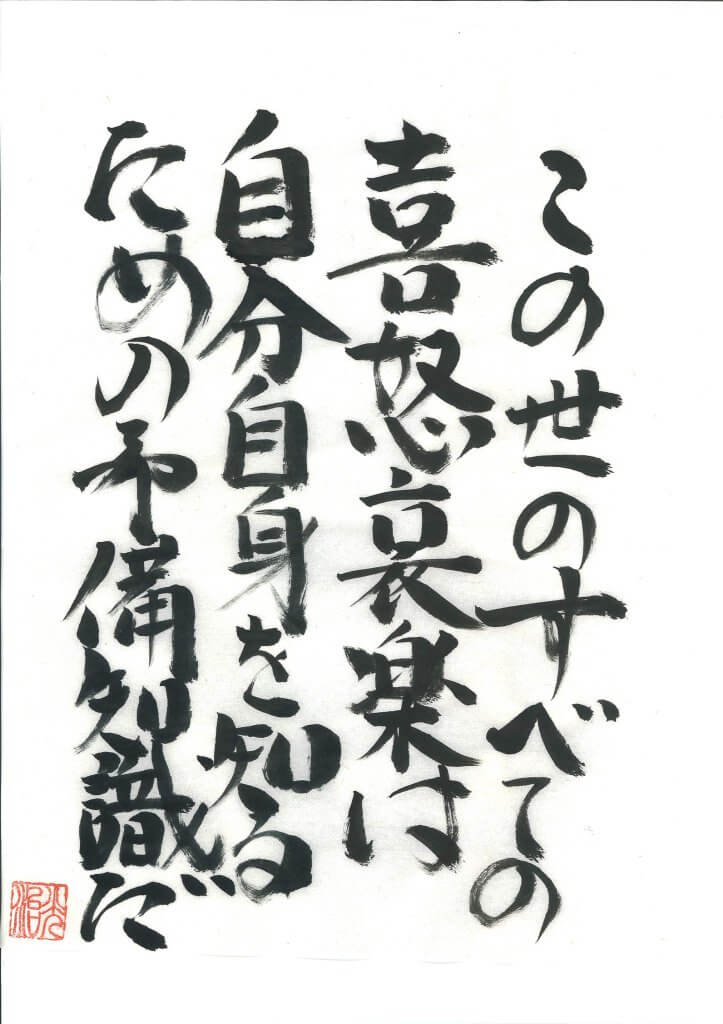 この世のすべての
喜怒哀楽は
自分自身を知る
ための予備知識だ